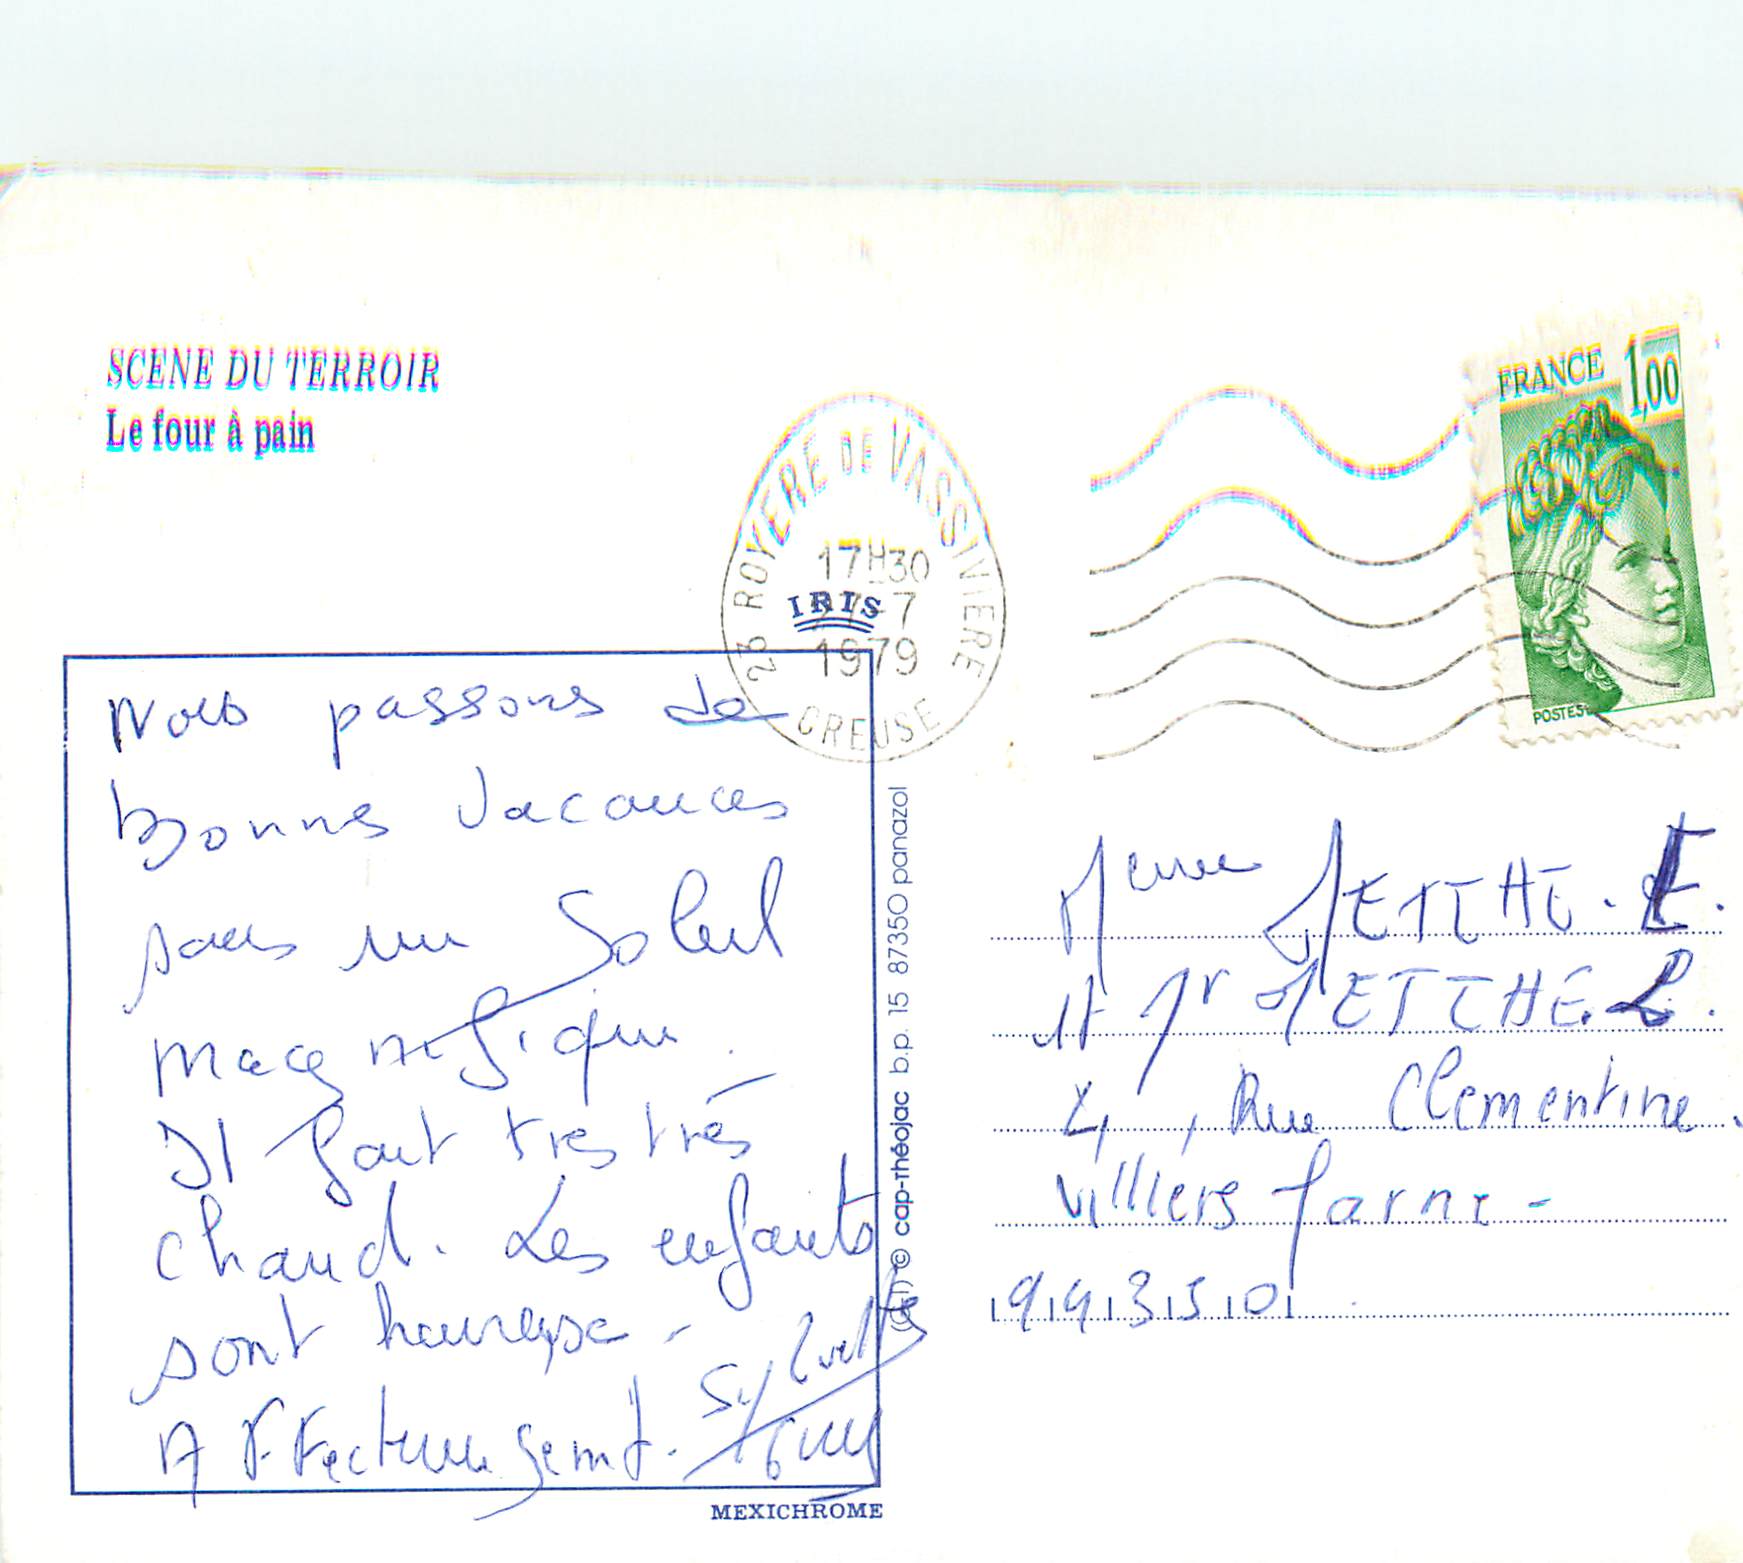 SCENE DU TERROIR
Le four à pain
FRANCE 1,00
POSTES
23 ROYERE DE VASSIVIERE
17H30
7
1979
CREUSE
IRIS
Nous passons de
bonnes vacances
sous un Soleil
magnifique.
Il fait tres trés
chaud. Les enfants
sont heureuse -
Affectueusement.
b.p. 15 87350 panazol
© cap-théojac
MEXICHROME
Mme METTHE. E.
et Mr METTHE. L.
4, Rue Clementine.
Villiers